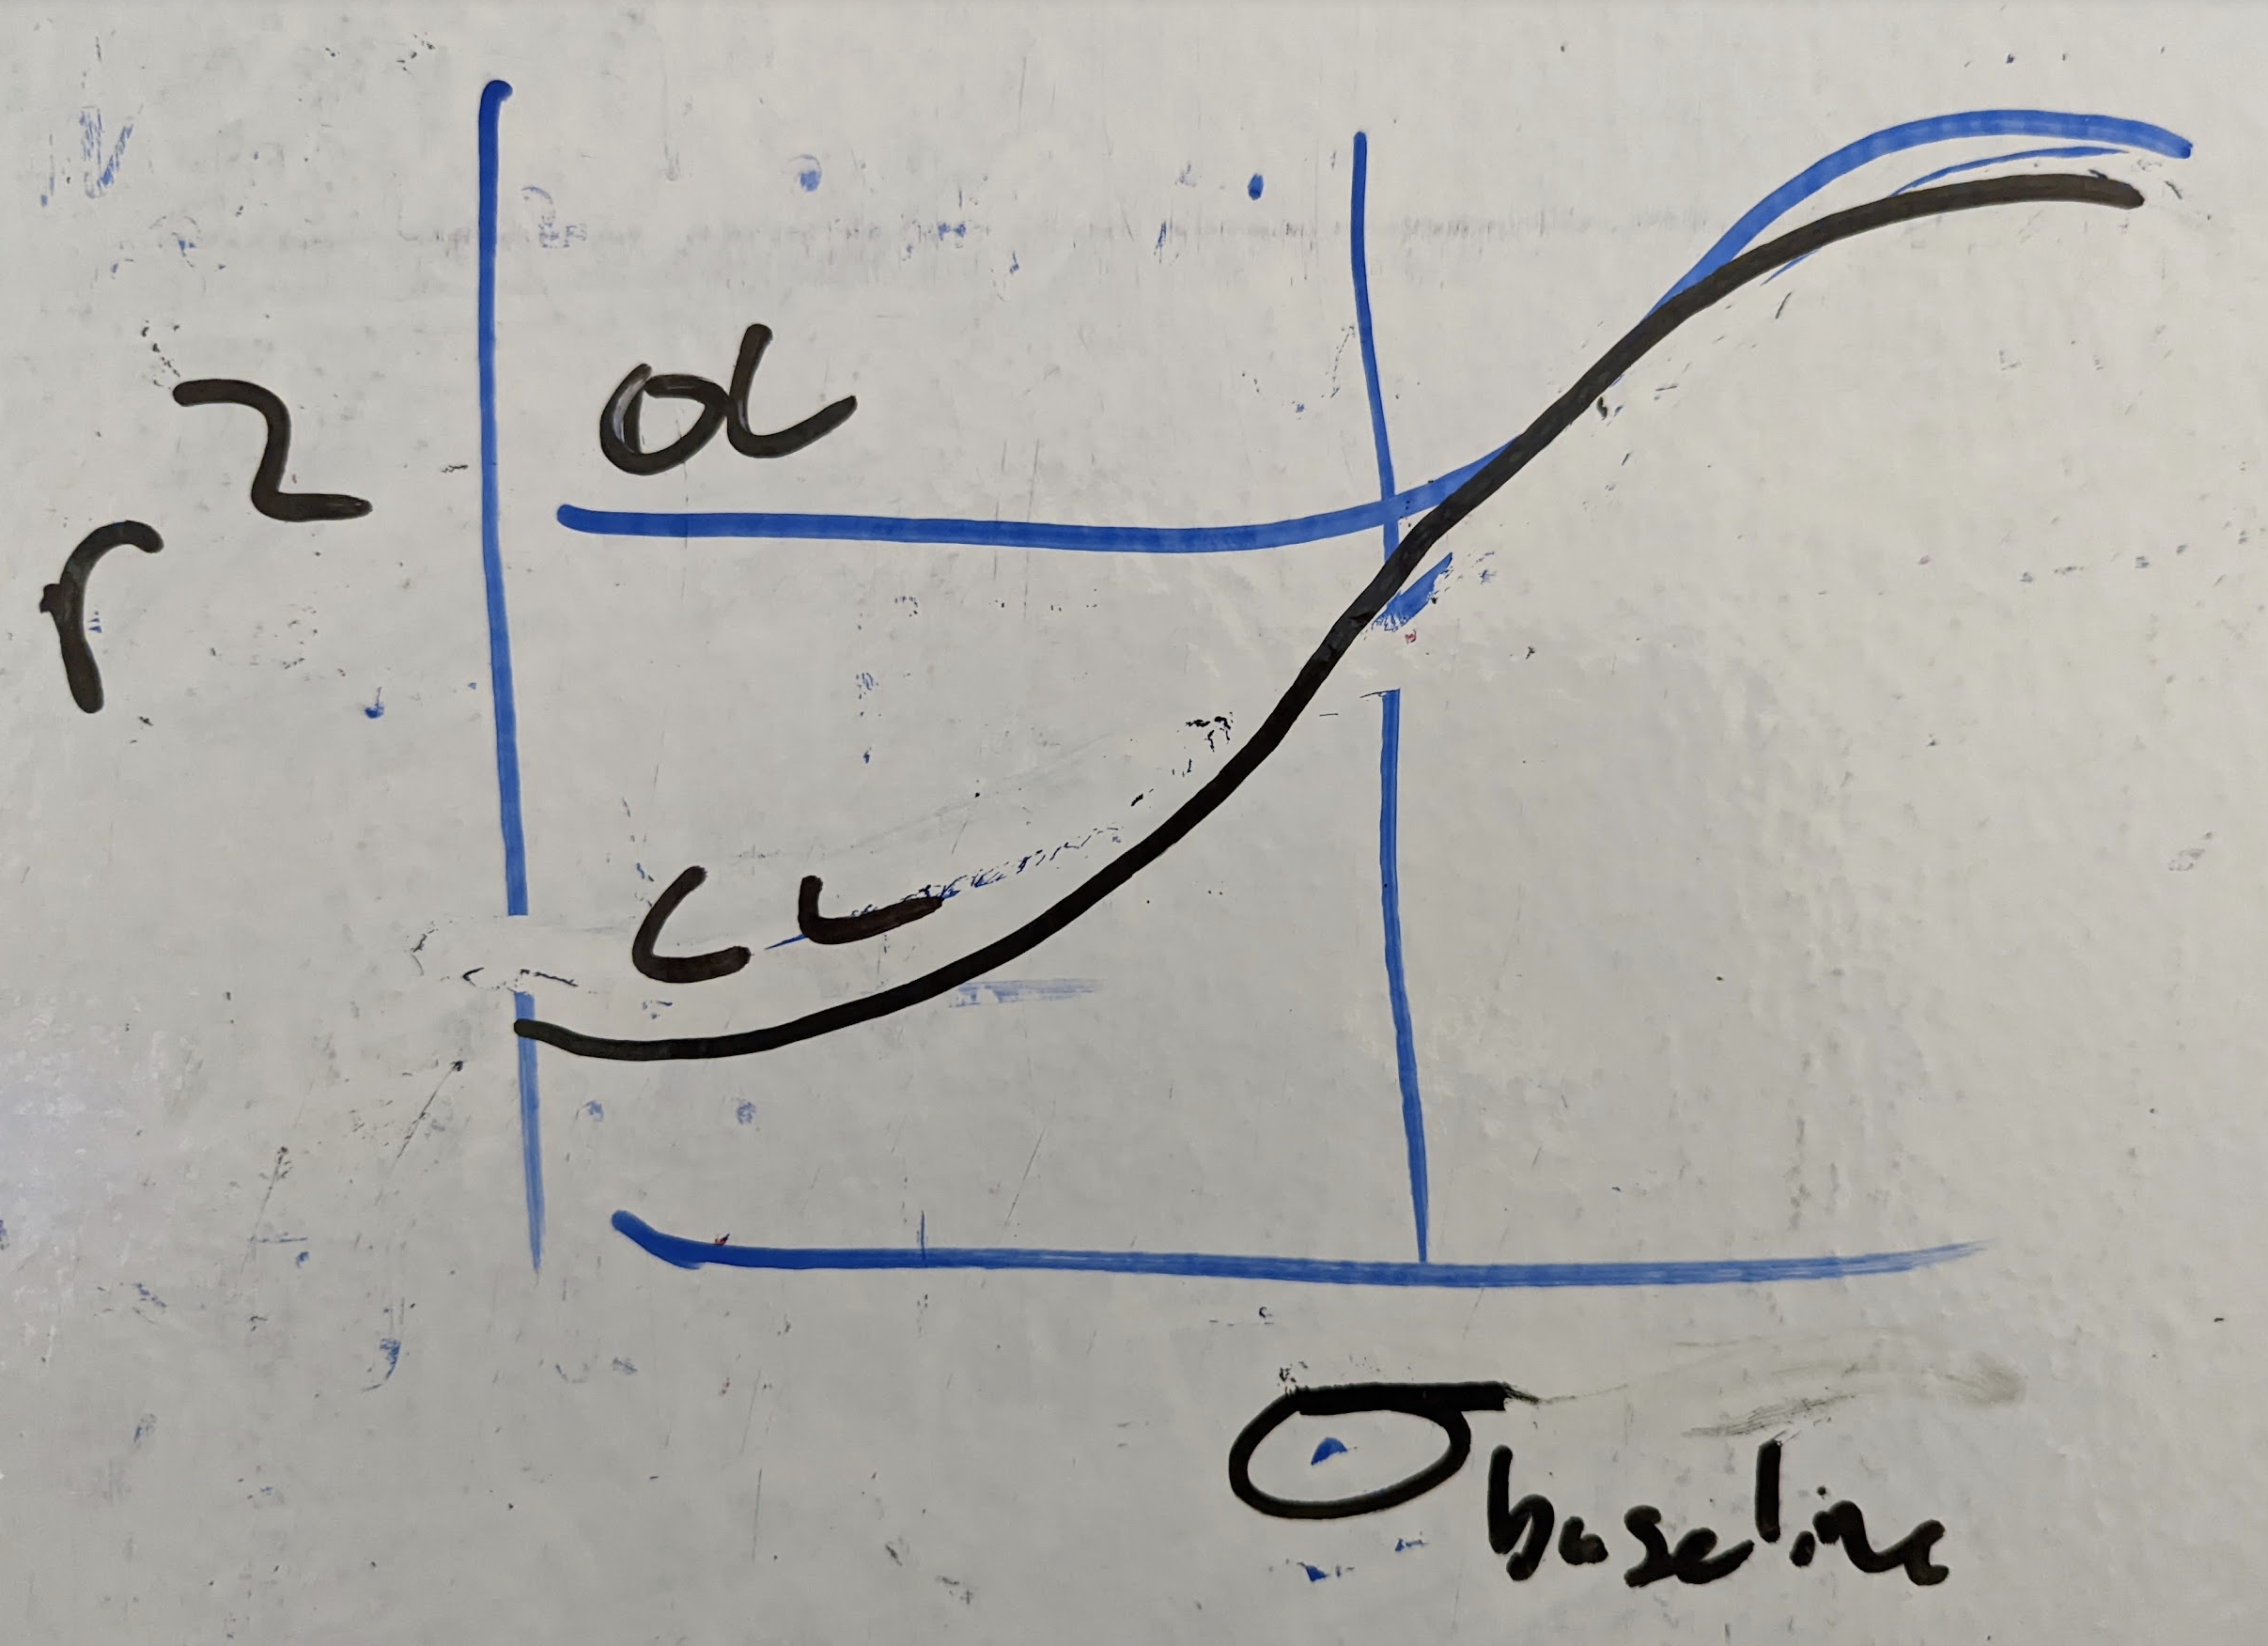 r²
OL
CL
σbaseline